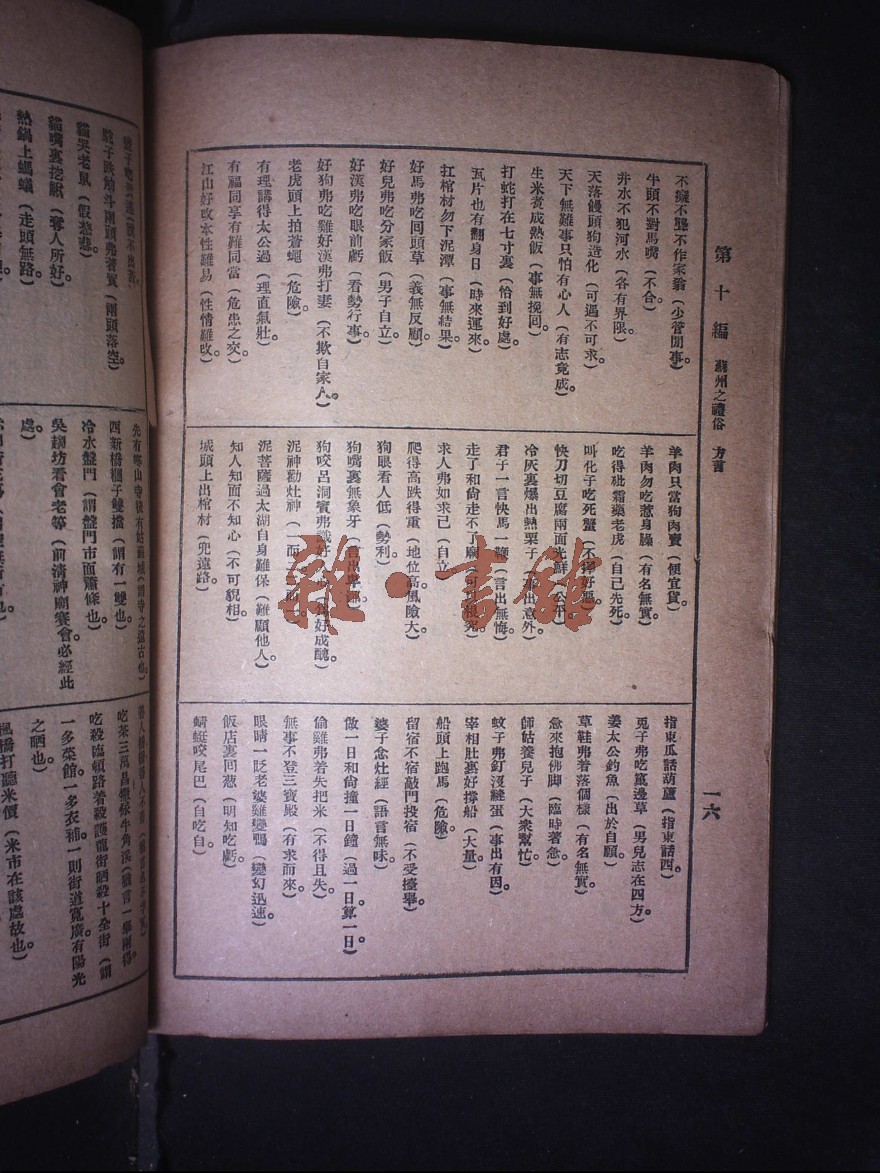 第十編 蘇州之禮俗 方言
一六
不癡不聾不作家翁（少管閒事）。
牛頭不對馬嘴（不合）。
井水不犯河水（各有界限）。
天落饅頭狗造化（可遇不可求）。
天下無難事只怕有心人（有志竟成）。
生米煮成熱飯（事無挽回）。
打蛇打在七寸裏（恰到好處）。
瓦片也有翻身日（時來運來）。
扛棺材勿下泥潭（事無結果）。
好馬弗吃回頭草（義無反顧）。
好兒弗吃分家飯（男子自立）。
好漢弗吃眼前虧（看勢行事）。
好狗弗吃雞好漢弗打妻（不欺自家人）。
老虎頭上拍蒼蠅（危險）。
有理講得太公過（理直氣壯）。
有福同享有難同當（危患之交）。
江山好改本性難易（性情難改）。
羊肉只當狗肉賣（便宜貨）。
羊肉勿吃惹身臊（有名無實）。
吃得砒霜藥老虎（自己先死）。
叫化子吃死蟹（不擇好惡）。
快刀切豆腐兩面光鮮（公平）。
冷灰裏爆出熱栗子（事出意外）。
君子一言快馬一鞭（言出無悔）。
走了和尚走不了廟（可以根究）。
求人弗如求己（自立）。
爬得高跌得重（地位高風險大）。
狗眼看人低（勢利）。
狗嘴裏無象牙
狗咬呂洞賓弗識好
泥神勸灶神
泥菩薩過太湖自身難保（難顧他人）。
知人知面不知心（不可貌相）。
城頭上出棺材（兜遠路）。
指東瓜話葫蘆（指東話西）。
兎子弗吃窠邊草（男兒志在四方）。
姜太公釣魚（出於自願）。
草鞋弗着落個樣（有名無實）。
急來抱佛脚（臨時著急）。
師姑養兒子（大衆幫忙）。
蚊子弗釘沒縫蛋（事出有因）。
宰相肚裏好撐船（大量）。
船頭上跑馬（危險）。
留宿不宿敲門投宿（不受擡舉）。
婆子念灶經（語言無味）。
做一日和尚撞一日鐘（過一日算一日）。
偷雞弗着失把米（不得且失）。
無事不登三寶殿（有求而來）。
眼睛一眨老婆雞變鴨（變幻迅速）。
飯店裏回葱（明知吃虧）。
蜻蜓咬尾巴（自吃自）。
貓哭老鼠（假慈悲）。
貓嘴裏挖鰍（奪人所好）。
熱鍋上螞蟻（走頭無路）。
先有寒山寺後有姑蘇城（謂寺之遠古也）。
四新橋棍子雙擋（謂有一雙也）。
冷水盤門（謂盤門市面蕭條也）。
吳趨坊看會老等（前清神廟賽會必經此
處）。
吃殺臨頓路着殺護龍街晒殺十全街（謂
一多菜館一多衣補一則街道寬廣有陽光
之晒也）。
楓橋打聽米價（米市在該處故也）。